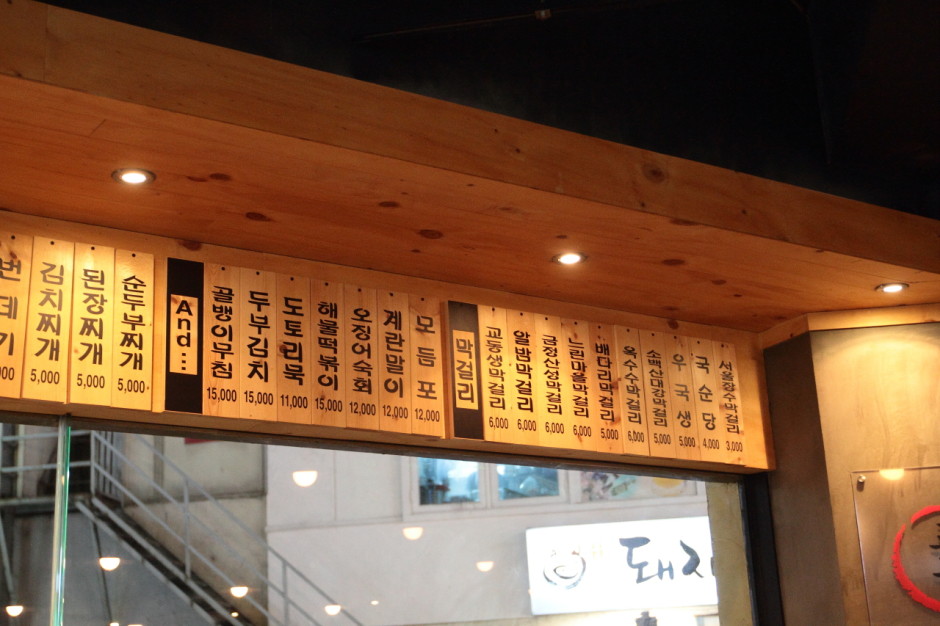 번데기
000
김치찌개
5,000
된장찌개
5,000
순두부찌개
5,000
And::
골뱅이무침
15,000
두부김치
15,000
도토리묵
11,000
해물떡볶이
15,000
오징어숙회
12,000
계란말이
12,000
모듬포
12,000
막걸리
교동생막걸리
6,000
알밤막걸리
6,000
금정산성막걸리
6,000
느린마을막걸리
6,000
배다리막걸리
5,000
옥수수막걸리
6,000
소백산대강막걸리
5,000
우국생
5,000
국순당
4,000
서울장수막걸리
3,000
돼지